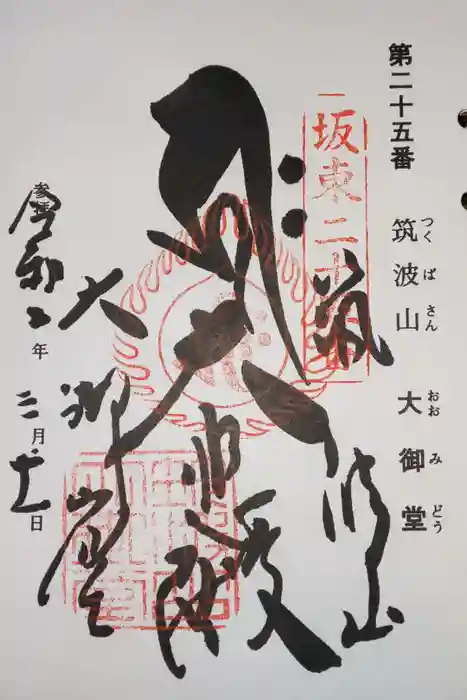 第二十五番
筑波山 大御堂
つくばさん おおみどう
坂東二十五番
筑波山
大悲殿
大御堂
参拝
令和二年二月十一日